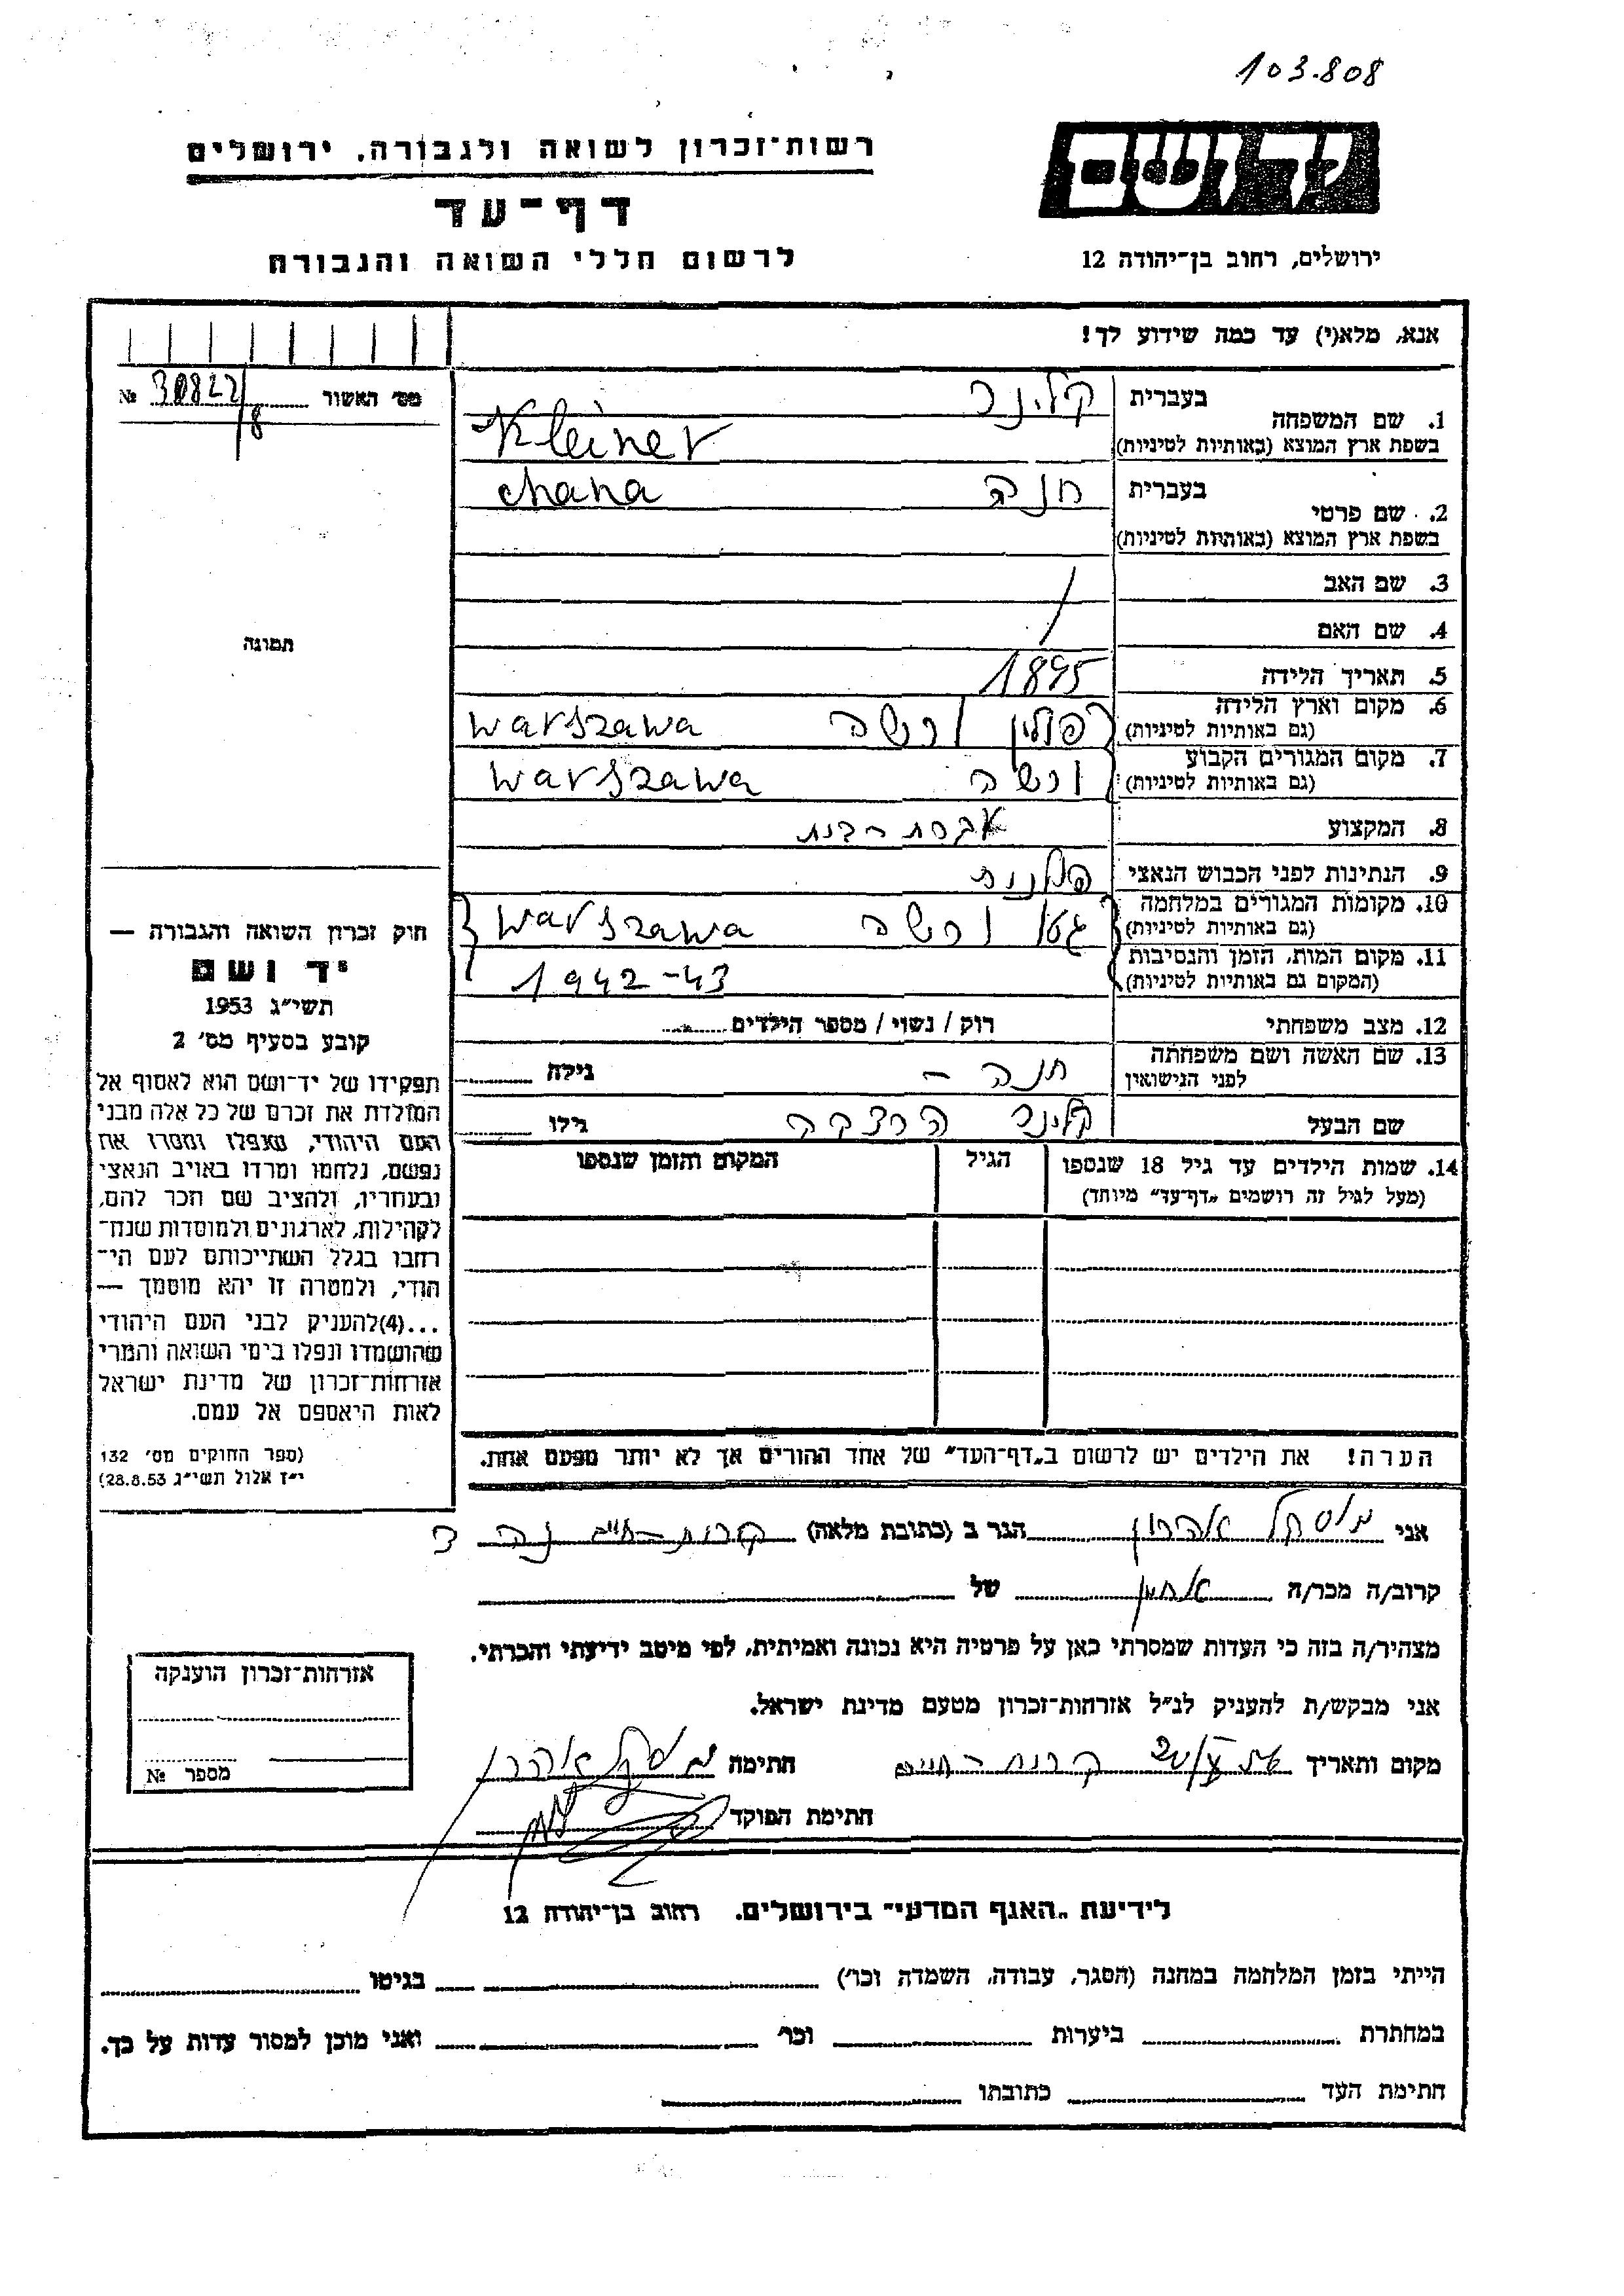 103.808
רשות־זכרון לשואה ולגבורה, ירושלים
יד ושם
דף־עד
לרשום חללי השואה והגבורה
ירושלים, רחוב בן־יהודה 12
אנא, מלא(י) עד כמה שידוע לך!
מס׳ האשור 30822/8 №
1. שם המשפחה
בעברית קלינר
בשפת ארץ המוצא (באותיות לטיניות) Kleiner
2. שם פרטי
בעברית חנה chana
בשפת ארץ המוצא (באותיות לטיניות)
3. שם האב /
4. שם האם
תמונה
5. תאריך הלידה 1895
6. מקום וארץ הלידה פולין ורשה warszawa
(גם באותיות לטיניות)
7. מקום המגורים הקבוע ורשה warszawa
(גם באותיות לטיניות)
8. המקצוע עקרת-בית
9. הנתינות לפני הכבוש הנאצי פולנית
10. מקומות המגורים במלחמה גטו ורשה warszawa
(גם באותיות לטיניות)
11. מקום המות, הזמן והנסיבות 1942-43
(המקום גם באותיות לטיניות)
12. מצב משפחתי רוק / נשוי / מספר הילדים
13. שם האשה ושם משפחתה חנה – גילה
לפני הנישואין
שם הבעל קלינר גילו
14. שמות הילדים עד גיל 18 שנספו הגיל המקום והזמן שנספו
(מעל לגיל זה רושמים „דף־עד״ מיוחד)
הערה! את הילדים יש לרשום ב„דף־העד״ של אחד ההורים אך לא יותר מפעם אחת.
חוק זכרון השואה והגבורה —
יד ושם
תשי״ג 1953
קובע בסעיף מס׳ 2
תפקידו של יד־ושם הוא לאסוף אל
המולדת את זכרם של כל אלה מבני
העם היהודי, שנפלו ומסרו את
נפשם, נלחמו ומרדו באויב הנאצי
ובעוזריו, ולהציב שם וזכר להם,
לקהילות, לארגונים ולמוסדות שנח־
רחבו בגלל השתייכותם לעם הי־
הודי, ולמטרה זו יהא מוסמך —
...(4)להעניק לבני העם היהודי
שהושמדו ונפלו בימי השואה והמרי
אזרחות־זכרון של מדינת ישראל
לאות היאספם אל עמם.
(ספר החוקים מס׳ 132
י״ז אלול תשי״ג 28.8.53)
אני מוסקל אהרון הגר ב (כתובת מלאה) קרית-חיים
קרוב/ה מכר/ה של
מצהיר/ה בזה כי העדות שמסרתי כאן על פרטיה היא נכונה ואמיתית, לפי מיטב ידיעתי והכרתי.
אני מבקש/ת להעניק לנ״ל אזרחות־זכרון מטעם מדינת ישראל.
מקום ותאריך קרית-חיים חתימה מוסקל אהרון
חתימת הפוקד
אזרחות־זכרון הוענקה
מספר №
לידיעת „האגף המדעי״ בירושלים. רחוב בן־יהודה 12
הייתי בזמן המלחמה במחנה (הסגר, עבודה, השמדה וכו׳) בגיטו
במחתרת ביערות וכו׳ ואני מוכן למסור עדות על כך.
חתימת העד כתובתו